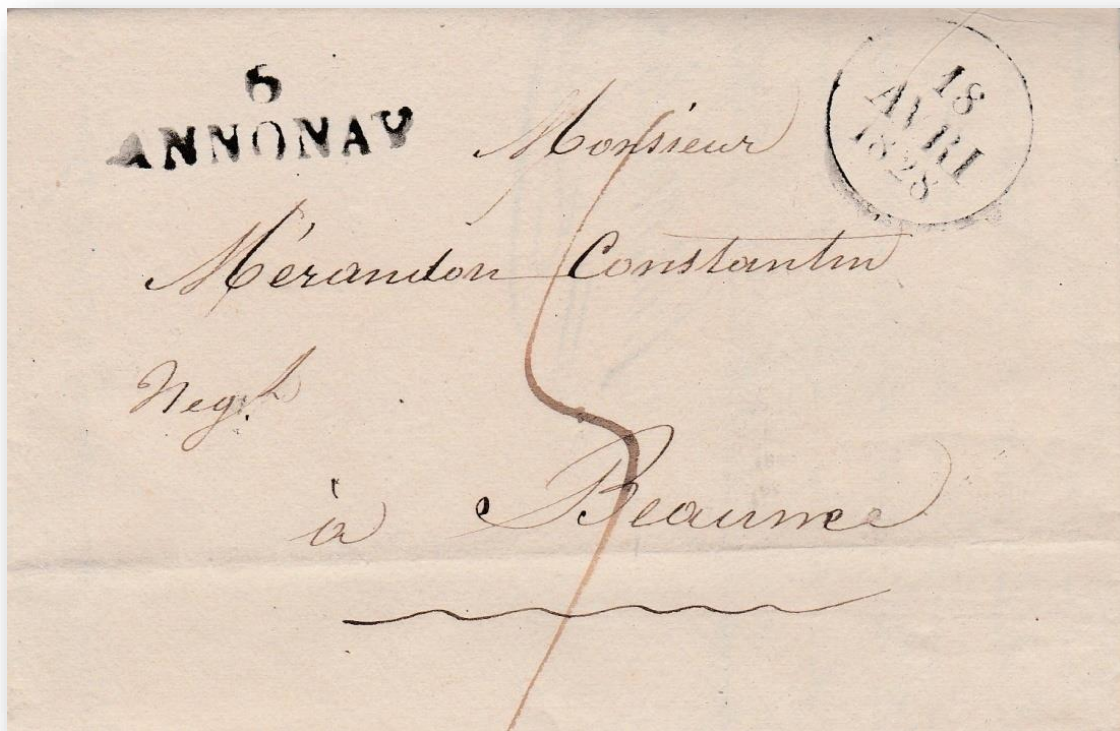 6
ANNONAY
18
AVRI
1828
Monsieur
Mérandon Constantin
Neg.t
à Beaune
5